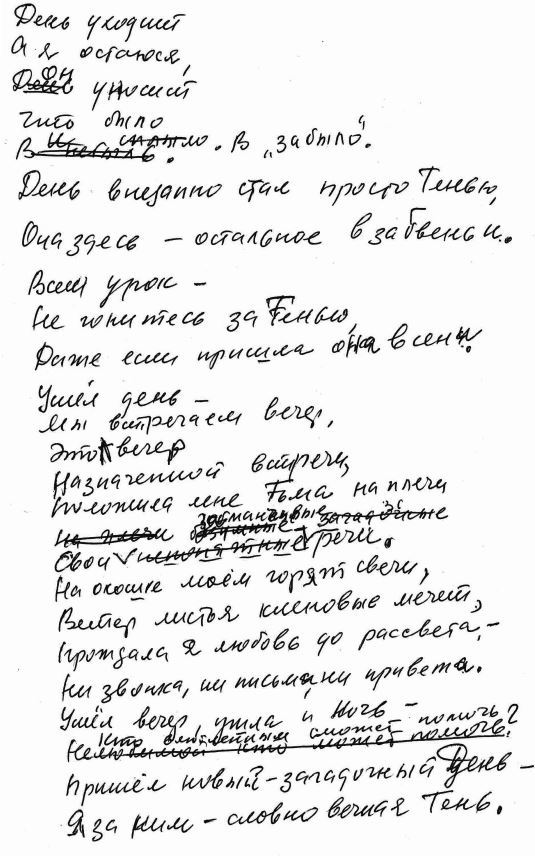 День уходит
А я остаюся,
Он уносит
Что было
В „забыло".
День внезапно стал просто Тенью,
Она здесь – остальное в забвеньи.
Всем урок –
Не гонитесь за Тенью,
Даже если пришла она в сени.
Ушёл день –
Мы встречаем вечер,
Это вечер
Назначенной встречи,
Положила мне Тьма на плечи
Свои непонятные речи.
На окошке моём горят свечи,
Ветер листья кленовые мечет,
Прождала я любовь до рассвета, –
Ни звонка, ни письма, ни привета.
Ушёл вечер, ушла и Ночь –
Кто сможет помочь?
Нелюбимой кто может помочь?
Пришёл новый – загадочный День –
Я за ним – словно вечная Тень.